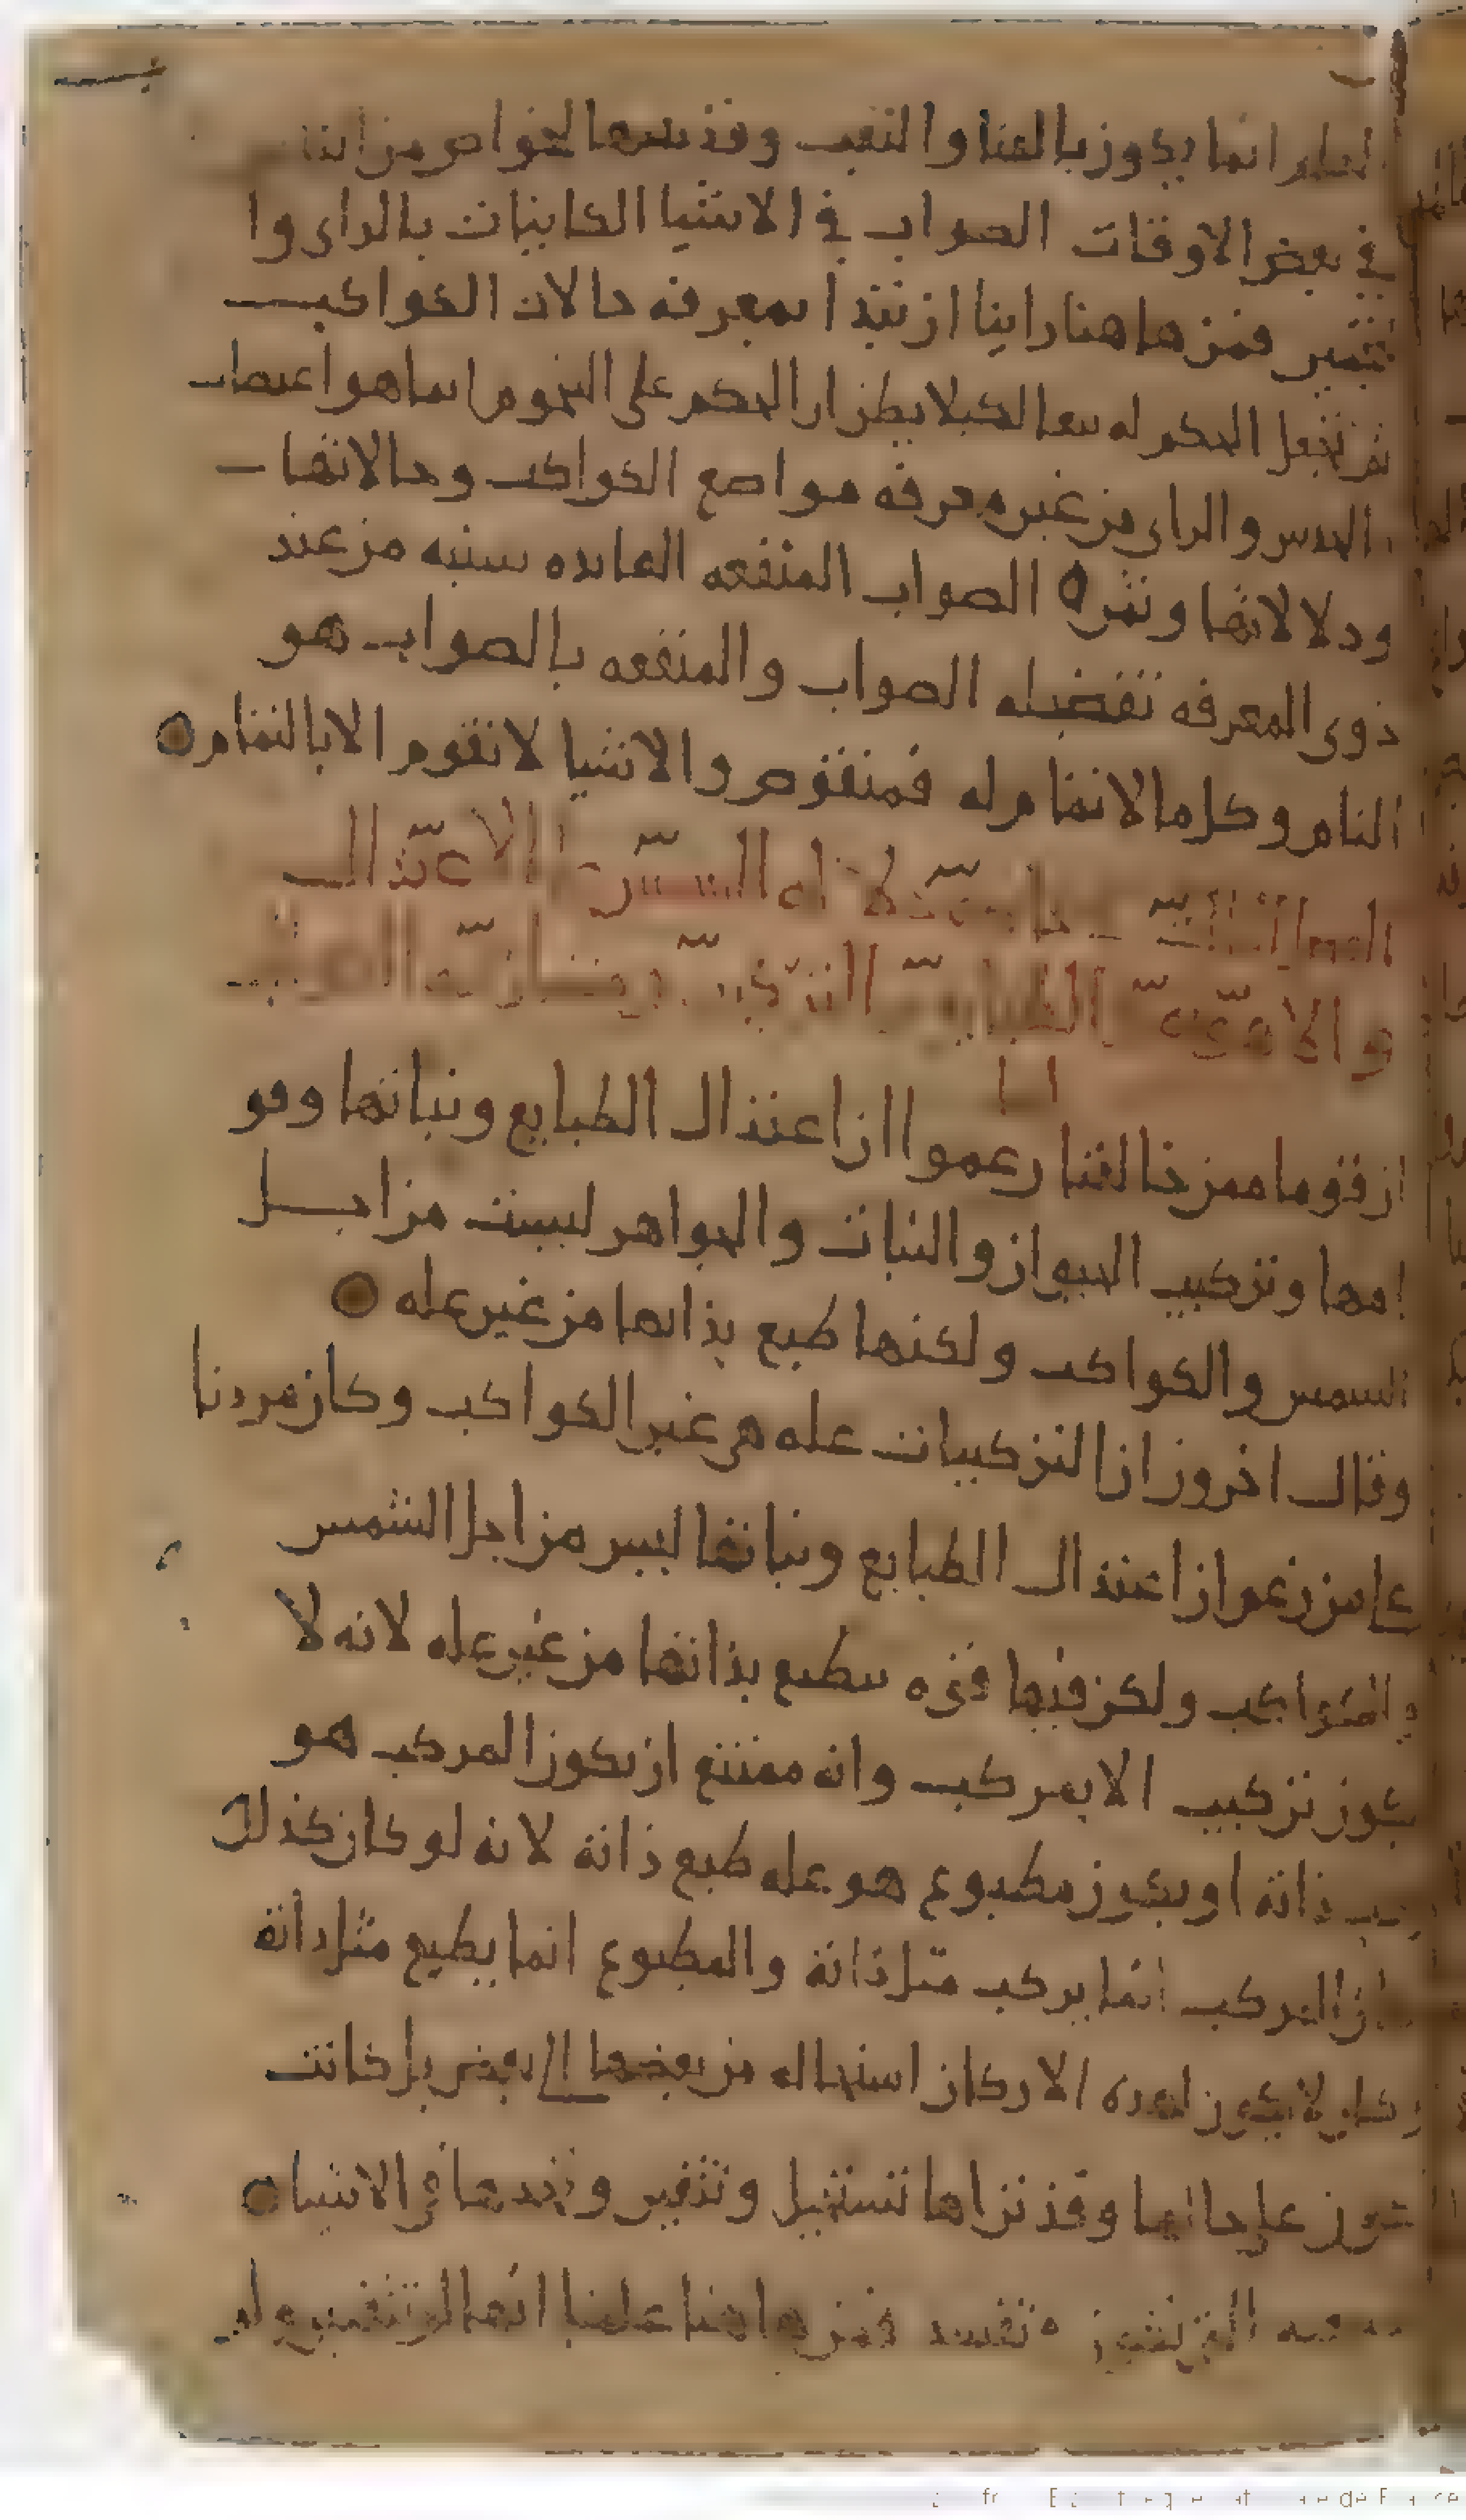 العلم انما يكون بالعنا والتعب وقد يتبعها الخواص من الناس
في بعض الاوقات الصواب في الاشيا الكاينات بالراي وا
لتخمين فمن هاهنا راينا ان نبتدا بمعرفه حالات الكواكب
ثم نجعل الحكم له تبعا لكيلا يظن ان الحكم على النجوم انما هو اعتصاب
الحدس والراي من غير معرفه مواضع الكواكب وحالاتها
ودلالاتها وثمره الصواب المنفعه العايده سنيه من عند
ذوي المعرفه تفضيله الصواب والمنفعه بالصواب هو
التام وكل ما لا تمام له فمنقوص والاشيا لا تقوم الا بالتمام
الاعتدال
والا الطبايع التركيب
ان قوما ممن خالفنا زعموا ان اعتدال الطبايع ونباتها وقو
امها وتركيب الحيوان والنبات والجواهر ليست من اجل
الشمس والكواكب ولكنها طبع بذاتها من غير عله
وقال اخرون ان التركيبات عله هي غير الكواكب وكان مردنا
على من زعم ان اعتدال الطبايع ونباتها ليس من اجل الشمس
والكواكب ولكن فيها قوه تطبع بذاتها من غير عله لانه لا
يكون تركيب الا بمركب وانه ممتنع ان يكون المركب هو
ذاته او يكون مطبوع هو عله طبع ذاته لانه لو كان كذلك
كان المركب انما يركب مثل ذاته والمطبوع انما يطبع مثل ذاته
وكان لا يكون لهذه الاركان استحاله من بعضها الى بعض بل كانت
تكون على حالها وقد نراها تستحيل وتتغير ونجدها في الاشيا
تفسد فمن هاهنا علمنا انها لم تتغير ولم